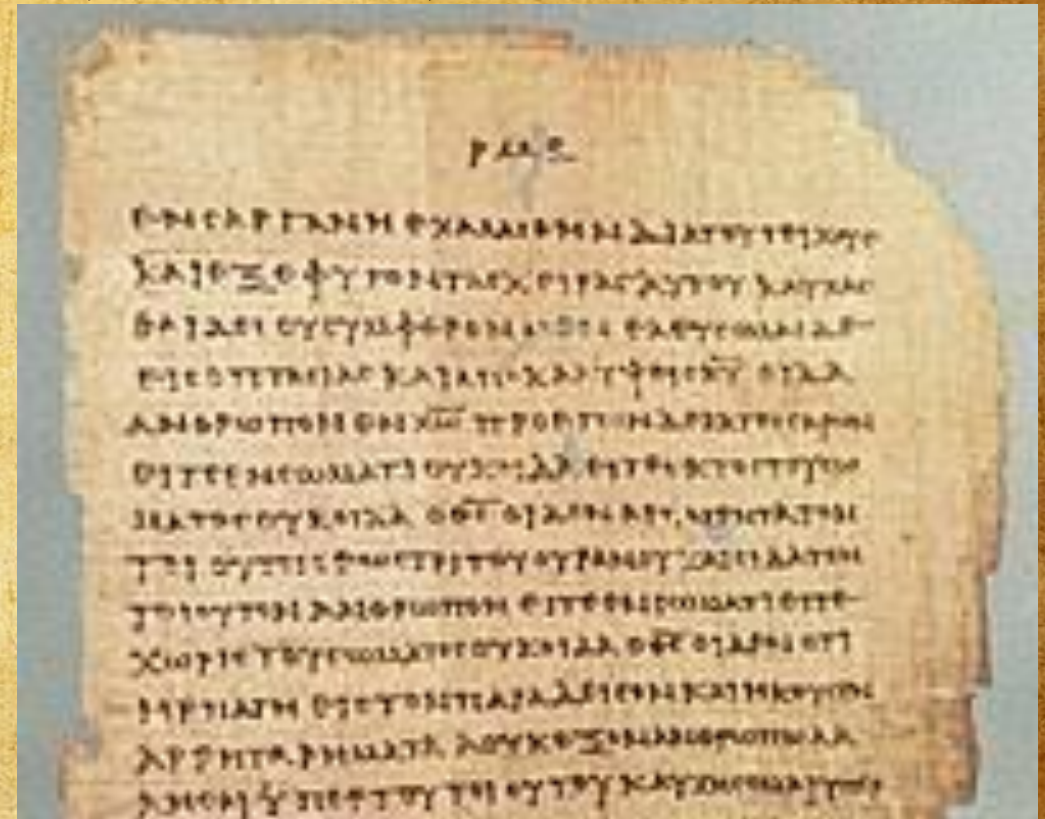 ρμε
ενϲαργανηεχαλαϲθηνδιατουτειχουϲ
καιεξεφυγονταϲχειραϲαυτουκαυχαϲ
θαιδειουϲυμφερονμενελευϲομαιδε
ειϲοπταϲιαϲκαιαποκαλυψειϲκ̅υ̅οιδα
ανθρωπονενχ̅ω̅προετωνδεκατεϲϲαρων
ειτεενϲωματιουκοιδαειτεεκτοϲτουϲω
ματοϲουκοιδαοθ̅ϲ̅οιδεναρπαγεντατον
τριτουουρανουκαιοιδατον
τοιουτονανθρωπονειτεενϲωματιειτε
χωριϲτουϲωματοϲουκοιδαοθ̅ϲ̅οιδενοτι
ηρπαγηειϲτονπαραδειϲονκαιηκουϲεν
αρρηταρηματααουκεξονανθρωπωλα
ληϲαιυπερτουτοιουτουκαυχηϲομαιυπερ